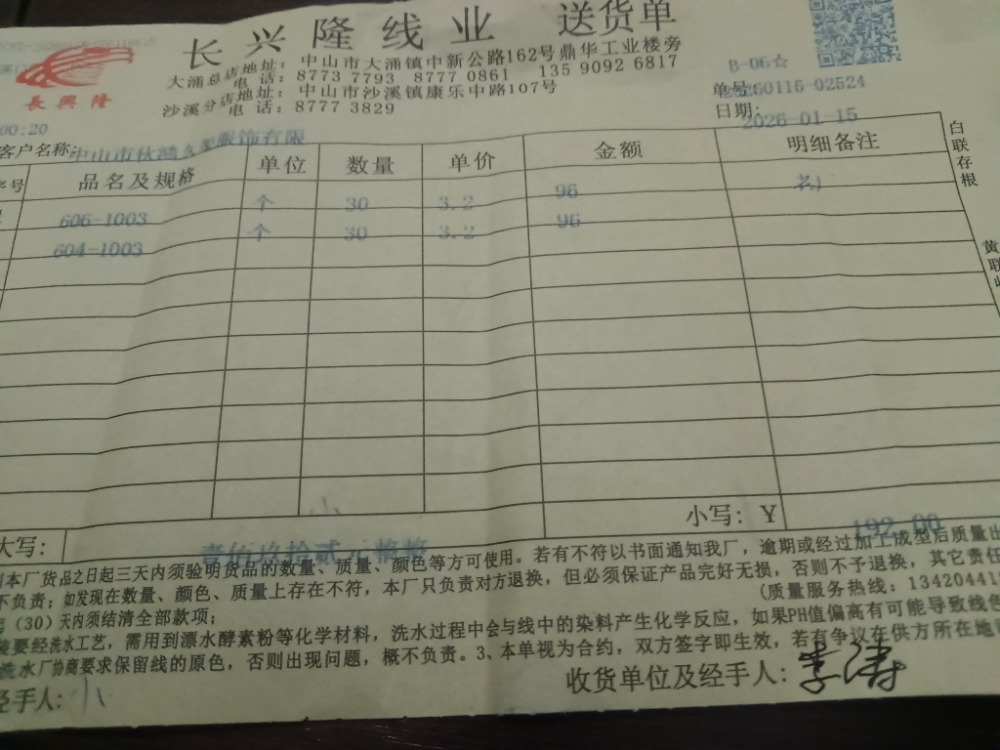 长兴隆线业 送货单
大涌总店地址：中山市大涌镇中新公路162号鼎华工业楼旁
电话：8773 7793 8777 0861 135 9092 6817
沙溪分店地址：中山市沙溪镇康乐中路107号
电话：8777 3829
長興隆
B-06☆
单号：60115-02524
日期：2026-01-15
00:20
客户名称：中山市 服饰有限
号 品名及规格 单位 数量 单价 金额 明细备注
606-1003 个 30 3.2 96
604-1003 个 30 3.2 96
白联存根
黄联
小写：Y 192.00
大写：壹佰玖拾贰元
本厂货品之日起三天内须验明货品的数量、质量、颜色等方可使用。若有不符以书面通知我厂，逾期或经过加工成型后质量出
不负责；如发现在数量、颜色、质量上存在不符，本厂只负责对方退换，但必须保证产品完好无损，否则不予退换，其它责任
（30）天内须结清全部款项； （质量服务热线：13420441
要经洗水工艺，需用到漂水酵素粉等化学材料，洗水过程中会与线中的染料产生化学反应，如果PH值偏高有可能导致线
洗水厂协商要求保留线的原色，否则出现问题，概不负责。3、本单视为合约，双方签字即生效，若有争议在供方所在地
经手人：
收货单位及经手人：李涛